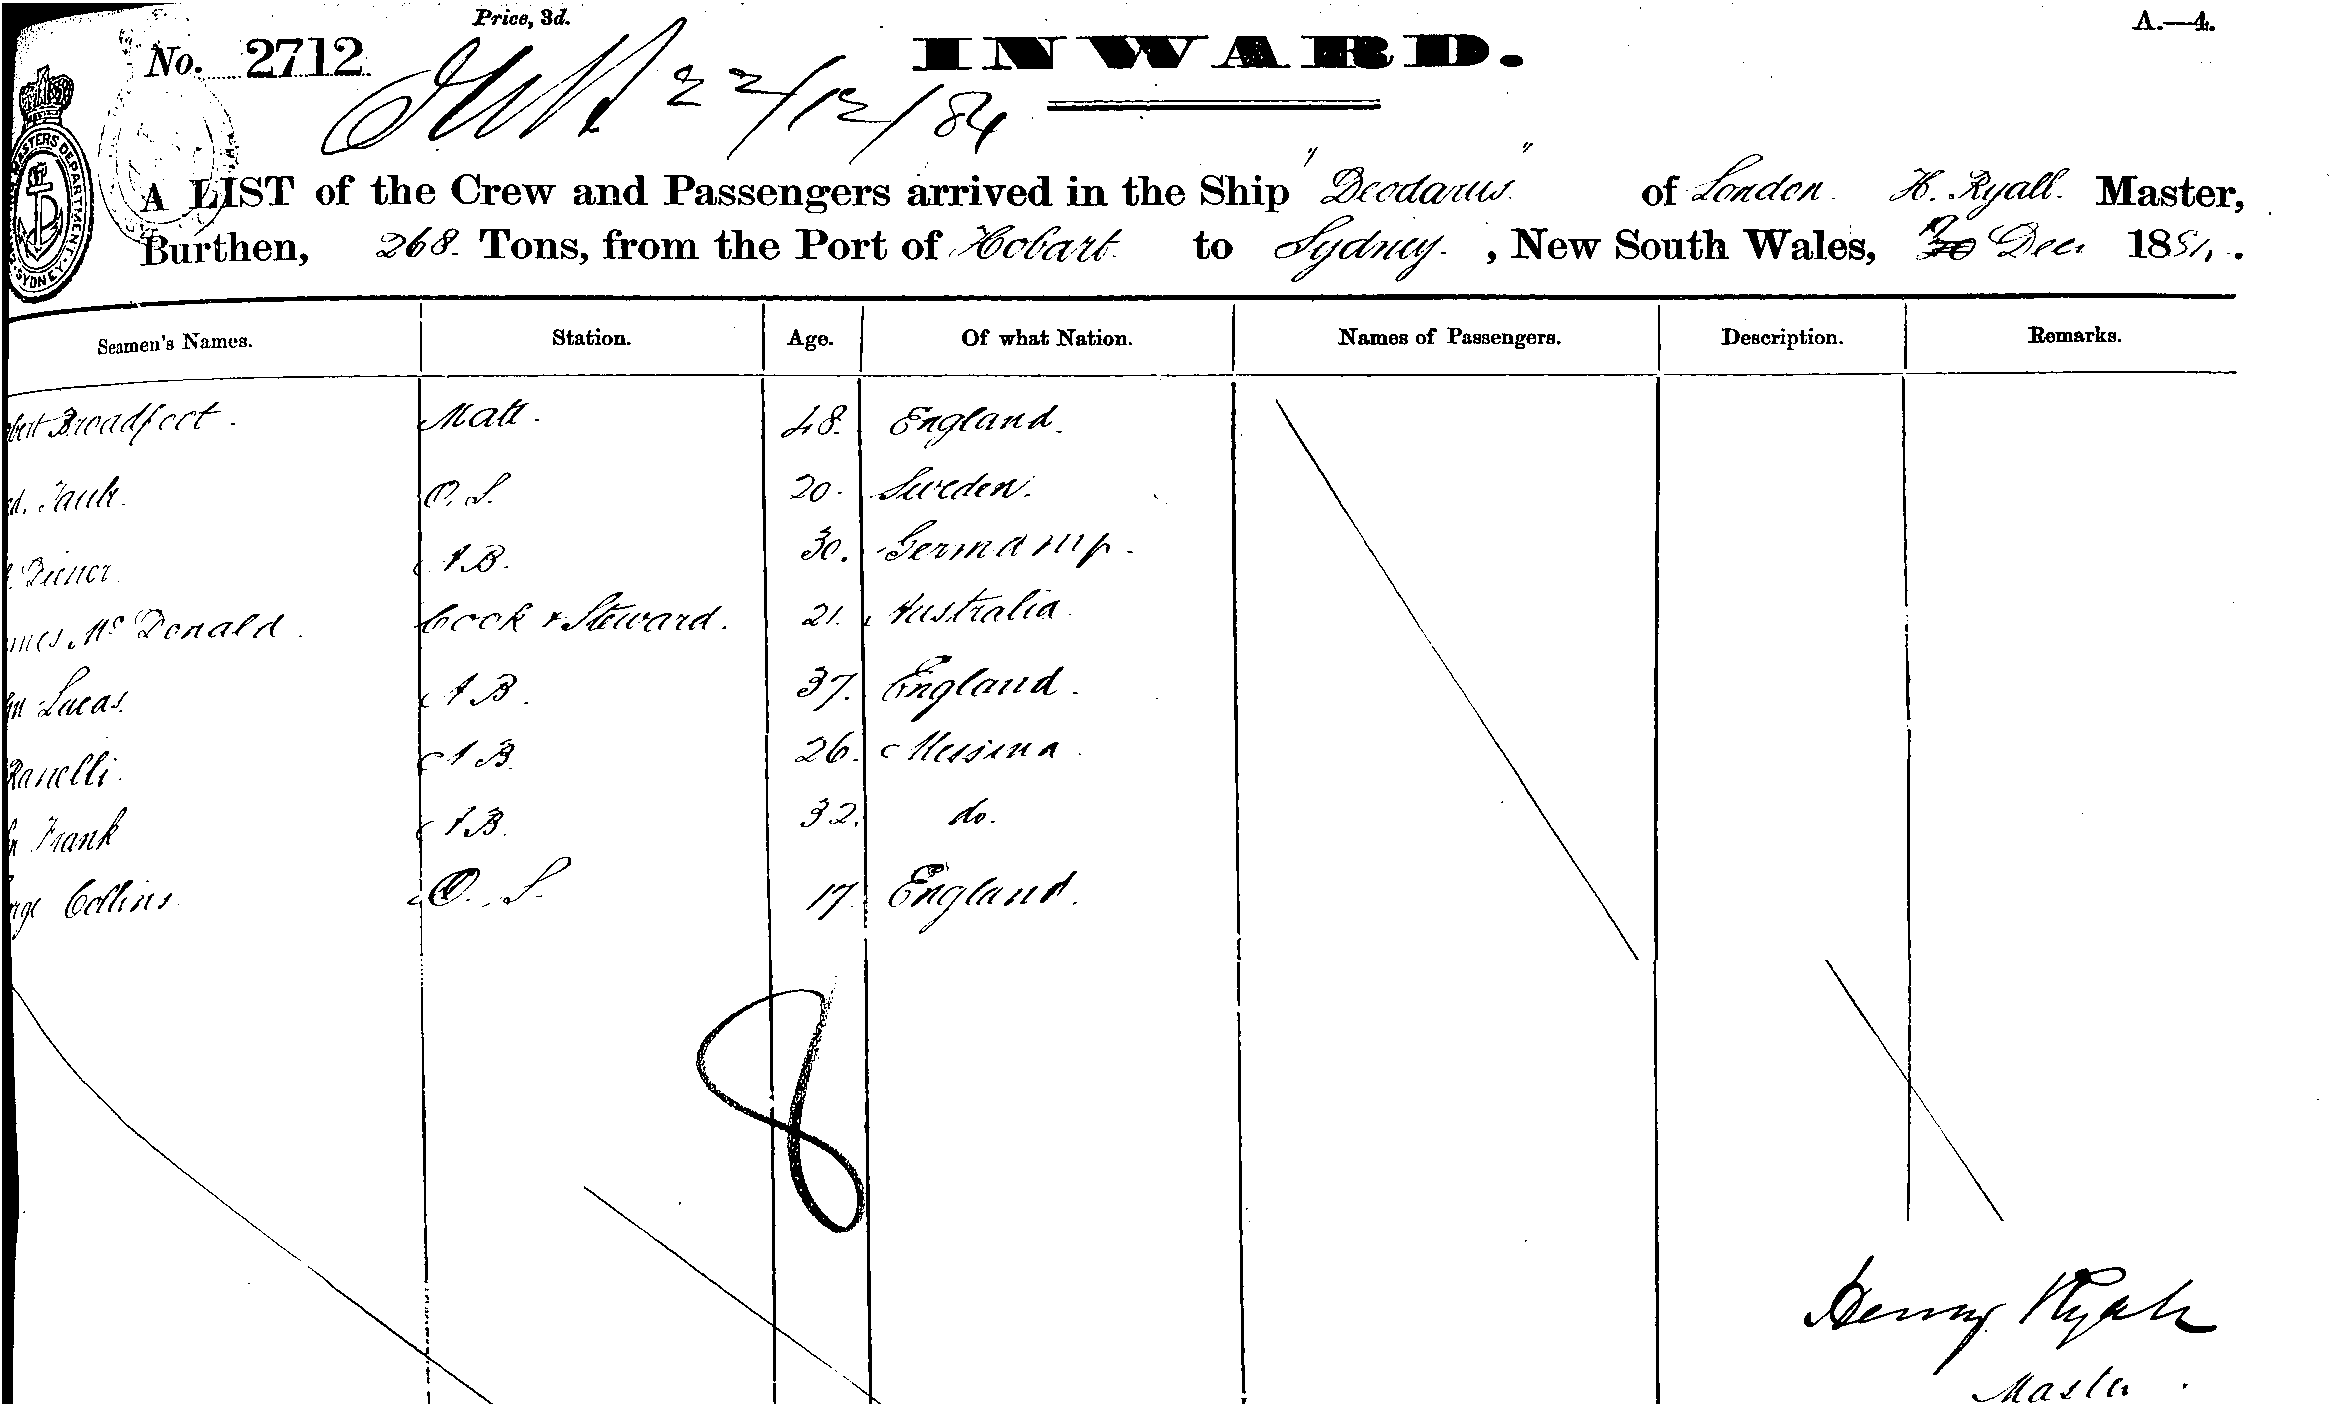 Price, 3d.
A.—4.
No. 2712
INWARD.
22/12/84
A LIST of the Crew and Passengers arrived in the Ship "Deodarus" of London H. Ryall. Master,
Burthen, 268. Tons, from the Port of Hobart to Sydney. , New South Wales, Dec. 1884.
Seamen's Names. Station. Age. Of what Nation. Names of Passengers. Description. Remarks.
bert Broadfoot. Mate. 48. England.
O. S. 20. Sweden.
Diener A B. 30. Germany.
mes Mc Donald. Cook & Steward. 21. Australia.
hn Lucas. A B. 37. England.
Ranelli. A B. 26. Messina
hn Frank A B. 32. do.
rge Collins. O. S. 17 England.
8
Henry Ryall
Master.